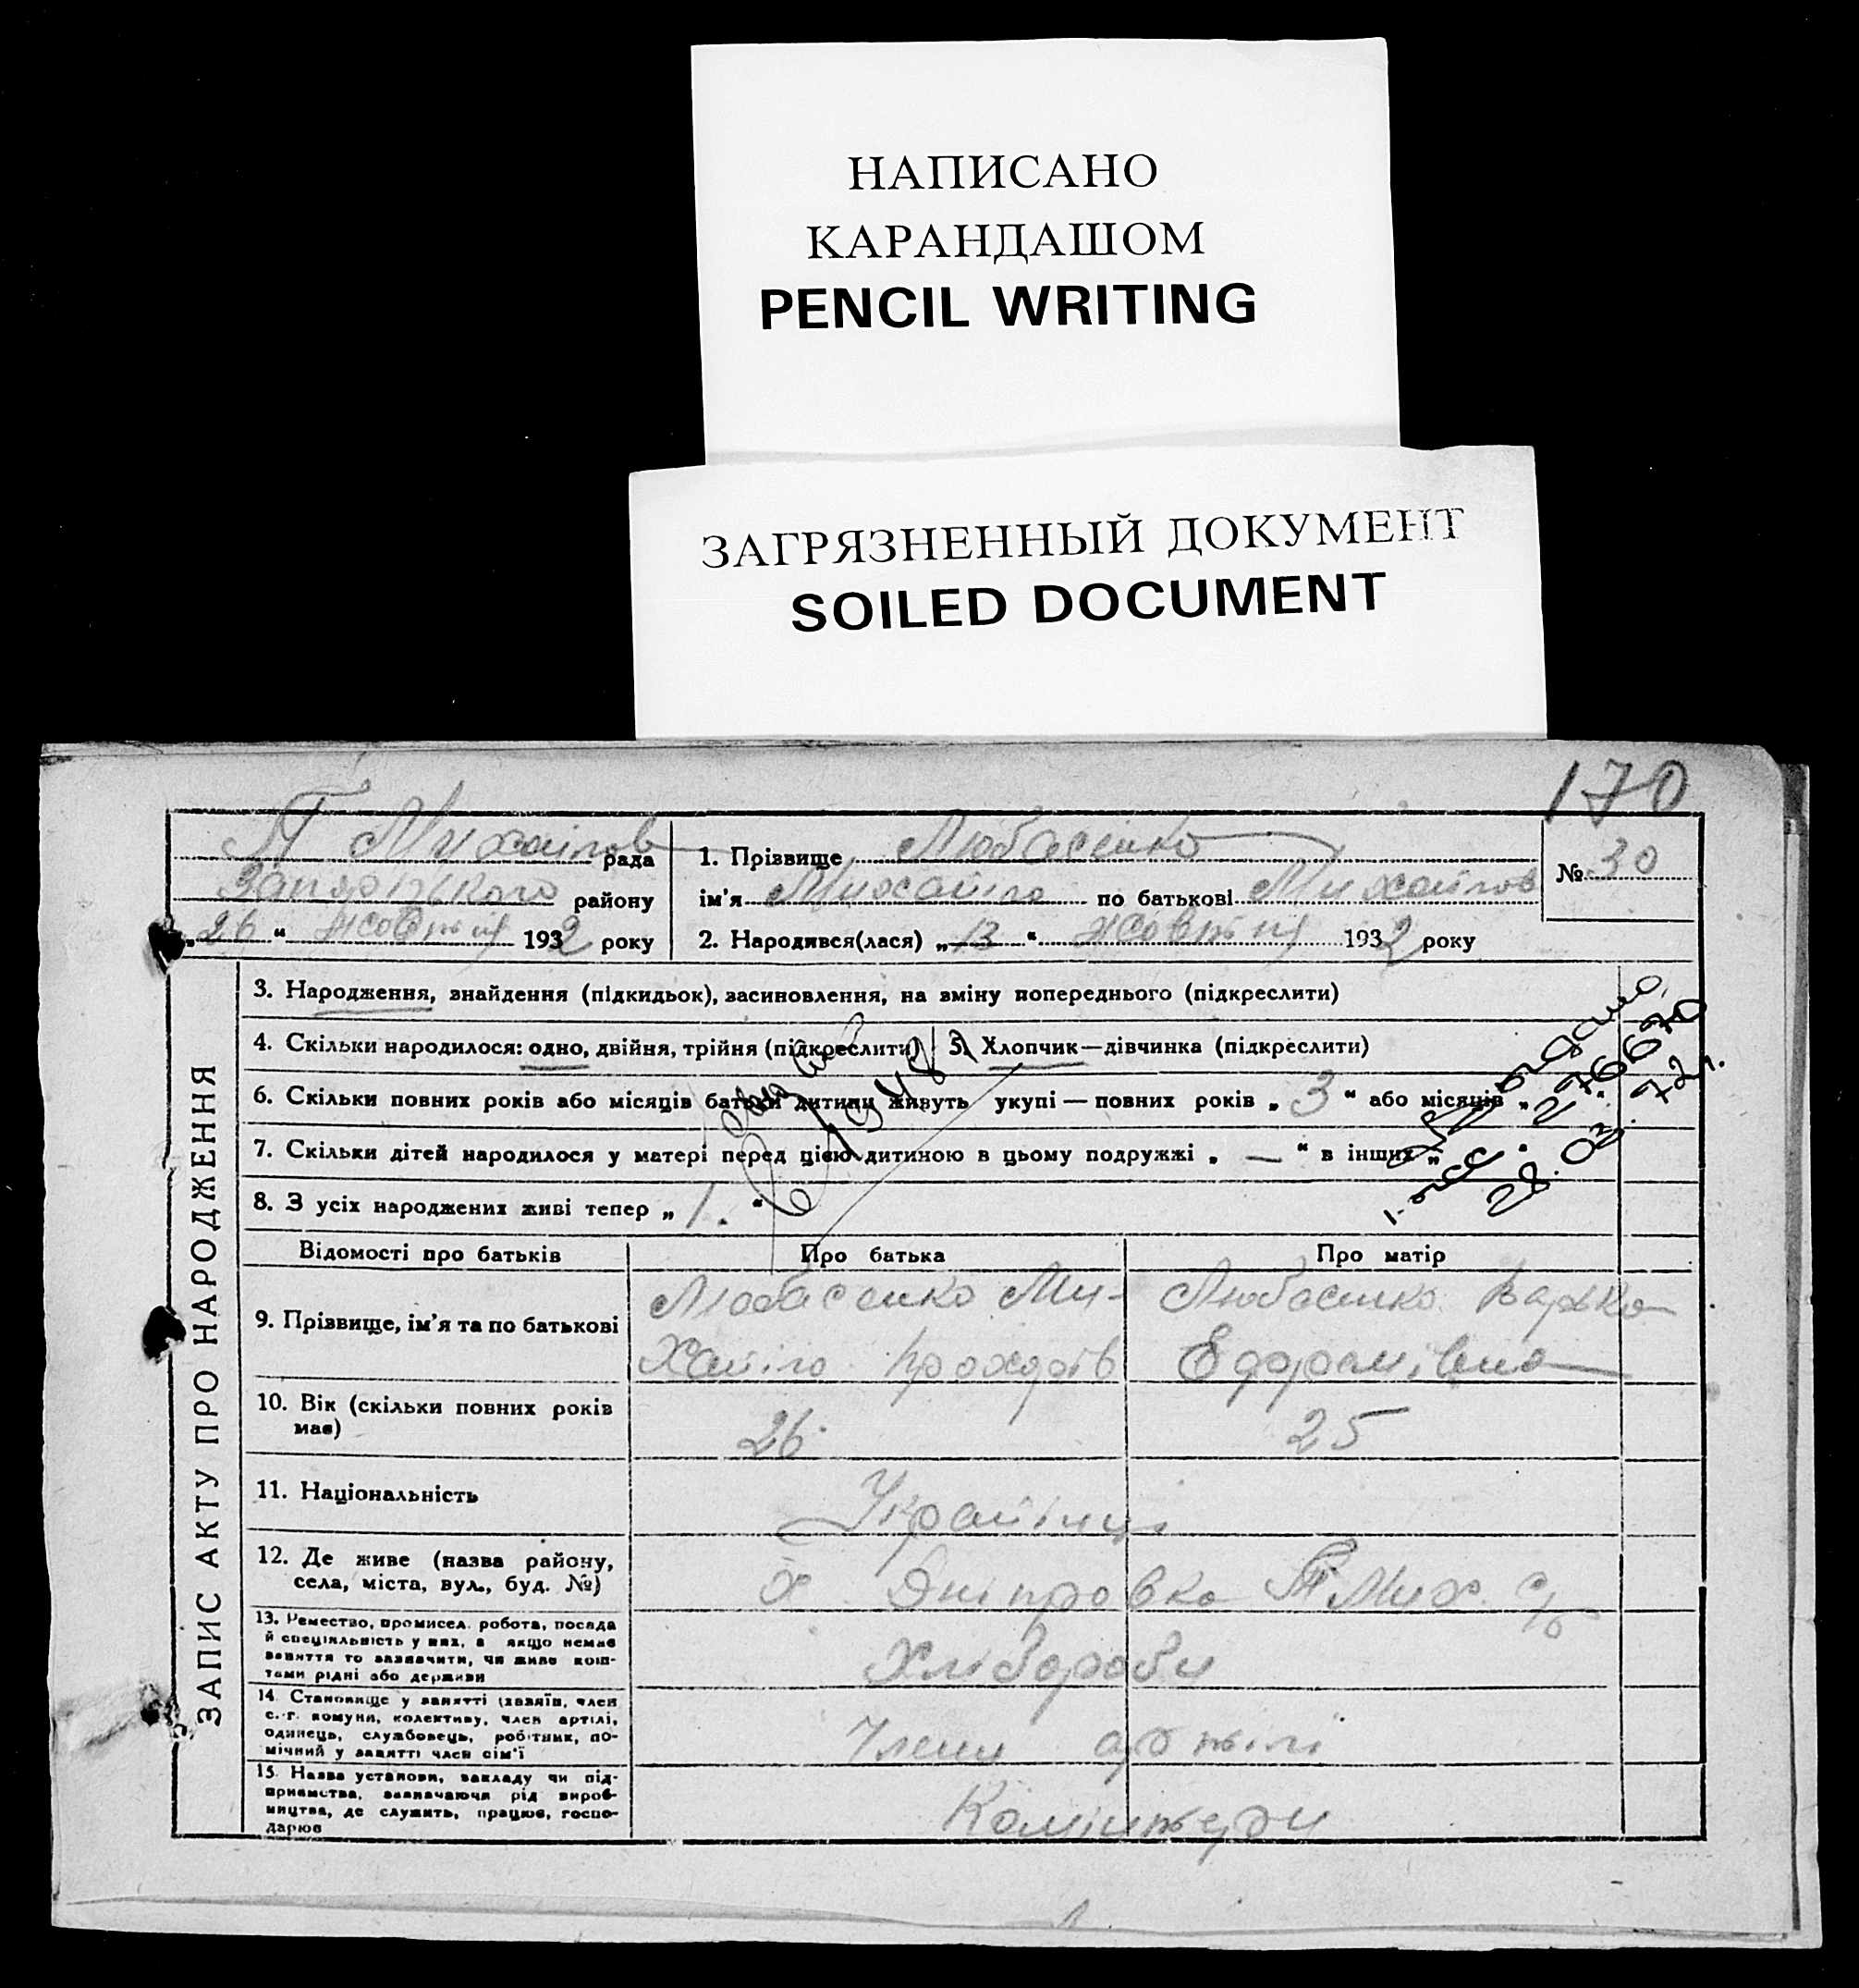 НАПИСАНО
КАРАНДАШОМ
PENCIL WRITING
ЗАГРЯЗНЕННЫЙ ДОКУМЕНТ
SOILED DOCUMENT
170
Т Михайлов рада
району
„26“ жовтня 1932 року
1. Прізвище Любасенко
ім'я Михайло по батькові Михайлов
2. Народився(лася) „13“ жовтня 1932 року
№ 30
ЗАПИС АКТУ ПРО НАРОДЖЕННЯ
3. Народження, знайдення (підкидьок), засиновлення, на зміну попереднього (підкреслити)
4. Скільки народилося: одно, двійня, трійня (підкреслити)
5. Хлопчик—дівчинка (підкреслити)
6. Скільки повних років або місяців батьки дитини живуть укупі — повних років „ 3 “ або місяців „
7. Скільки дітей народилося у матері перед цією дитиною в цьому подружжі „ — “ в інших „ “
8. З усіх народжених живі тепер „ 1. “
28.03.72 г.
Відомості про батьків Про батька Про матір
9. Прізвище, ім'я та по батькові
Любасенко Ми-
хайло
Любасенко Варка
10. Вік (скільки повних років
має)
26
25
11. Національність
Українці
12. Де живе (назва району,
села, міста, вул., буд. №)
х Дніпровка Т Мих. с/р
13. Ремество, промисел. робота, посада
й спеціяльність у них, а якщо немає
заняття то зазначити, чи живе кош-
тами рідні або держави
Хлібороби
14. Становище у занятті (хазяїн, член
с.-г. комуни, колективу, член артілі,
одинець, службовець, робітник, по-
мічний у занятті член сім'ї
Члени артілі
15. Назва установи, закладу чи під-
приємства, зазначаючи рід вироб-
ництва, де служить, працює, госпо-
дарює
Комінтерн